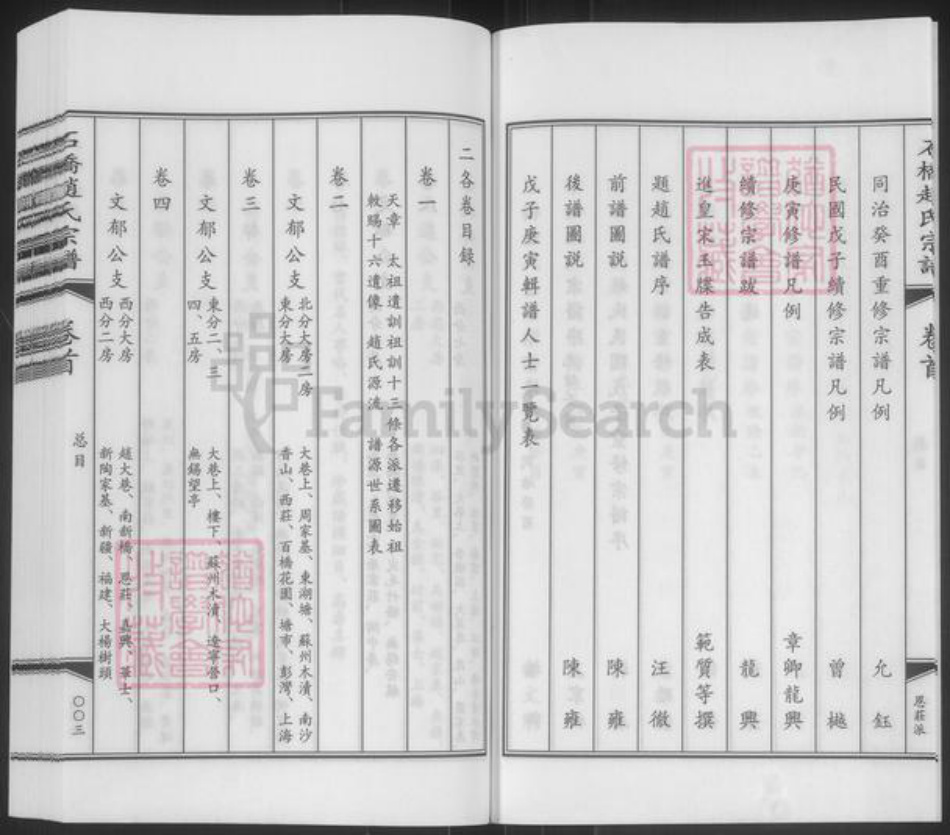 石橋趙氏宗譜 卷首
恩莊派
同治癸酉重修宗譜凡例 允鈺
民國戊子續修宗譜凡例 曾樾
庚寅修譜凡例 章卿龍興
續修宗譜跋 龍興
進皇宋玉牒告成表 範質等撰
題趙氏譜序 汪徹
前譜圖說 陳雍
後譜圖說 陳雍
戊子庚寅輯譜人士一覽表
二各卷目錄
卷一
天章 太祖遺訓祖訓十三條各派遷移始祖
敕賜十六遺像 趙氏源流 譜源世系圖表
卷二
文郁公支
北分大房二房 大巷上、周家基、東湖塘、蘇州木瀆、南沙
東分大房 香山、西莊、百橋花園、塘市、彭灣、上海
卷三
文郁公支
東分二、三 大巷上、樓下、蘇州木瀆、遼寧營口、
四、五房 無錫望亭
卷四
文郁公支
西分大房 趙大巷、南新橋、恩莊、嘉興、華士、
西分二房 新陶家基、新疆、福建、大楊樹頭
石橋趙氏宗譜 卷首
总目
〇〇三
FamilySearch